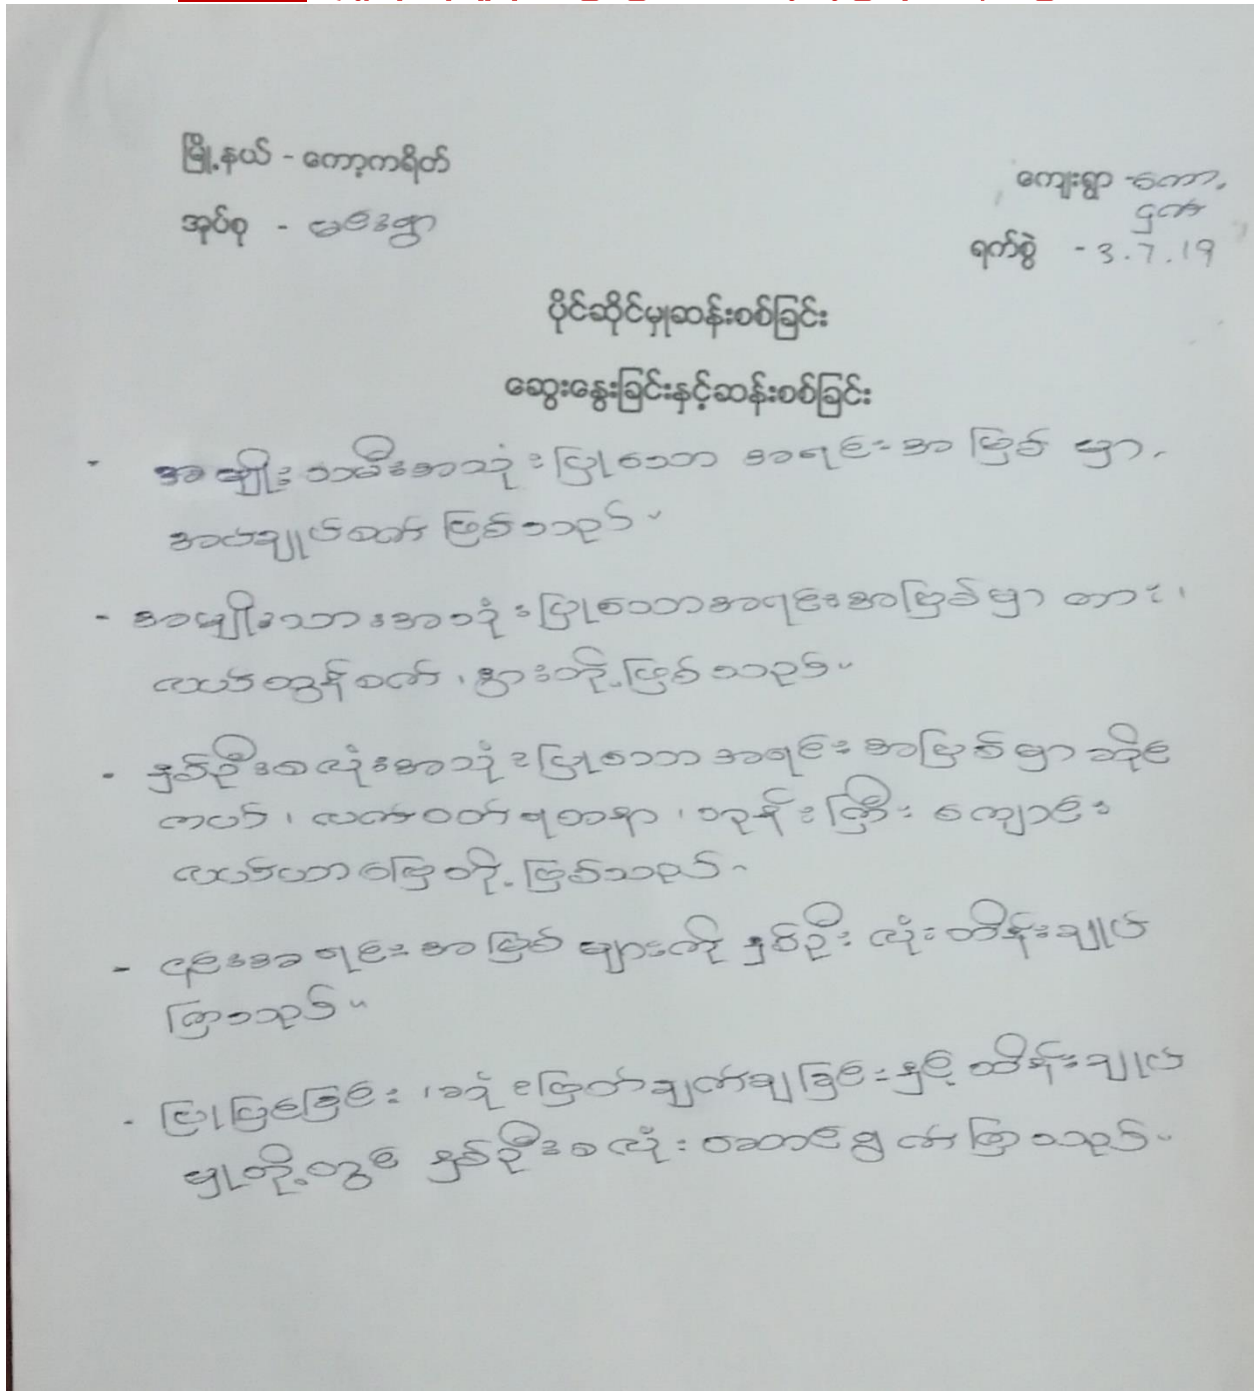 မြို့နယ် - ကော့ကရိတ်
ကျေးရွာ - ကော့
အုပ်စု -
ရက်စွဲ - 3.7.19
ပိုင်ဆိုင်မှုဆန်းစစ်ခြင်း
ဆွေးနွေးခြင်းနှင့်ဆန်းစစ်ခြင်း
- အမျိုးသမီးအသုံးပြုသော အရင်းအမြစ်မှာ
အပ်ချုပ်စက် ဖြစ်သည်။
- အမျိုးသားအသုံးပြုသောအရင်းအမြစ်မှာ ကား၊
လယ်ထွန်စက်၊ နွားတို့ဖြစ်သည်။
- နှစ်ဦးစလုံးအသုံးပြုသော အရင်းအမြစ်မှာ ဆိုင်
ကယ်၊ လက်ဝတ်ရတနာ၊ ဘုန်းကြီးကျောင်း
လယ်ယာမြေတို့ ဖြစ်သည်။
- ၎င်းအရင်းအမြစ်များကို နှစ်ဦးလုံး ထိန်းချုပ်
ကြသည်။
- ပြုပြင်ခြင်း၊ ဆုံးဖြတ်ချက်ချခြင်းနှင့် ထိန်းချုပ်
မှုတို့တွင် နှစ်ဦးစလုံး ဆောင်ရွက်ကြသည်။